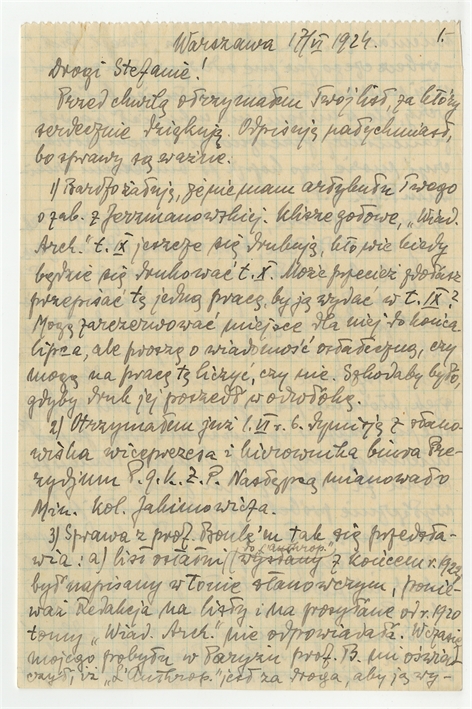 1.-
Warszawa 17/VI 1924.
Drogi Stefanie!
Przed chwilą otrzymałem Twój list, za który
serdecznie dziękuję. Odpisuję natychmiast,
bo sprawy są ważne.
1) Bardzo żałuję, że nie mam artykułu Twego
o zab. z Jerzmanowskiej. Klisze gotowe, „Wiad.
Arch." t. IX jeszcze się drukują, kto wie kiedy
będzie się drukować t. X. Może przecież zdołasz
przepisać tę jedną pracę, by ją wydać w t. IX?
Mogę zarezerwować miejsce dla niej do końca
lipca, ale proszę o wiadomość ostateczną, czy
mogę na pracę tę liczyć, czy nie. Szkodaby było,
gdyby druk jej poszedł w odwłokę.
2) Otrzymałem już 1.VI r. b. dymisję z stano-
wiska wiceprezesa i kierownika biura Pre-
zydjum P.g.k.Z.P. Następcą mianowało
Min. kol. Jakimowicza.
3) Sprawa z prof. Boule'm tak się przedsta-
wia: a) list ostatni (do „Anthrop.") wysłany z końcem r. 1922
był napisany w tonie stanowczym, ponie-
waż Redakcja na listy i na przesyłane od r. 1920
tomy „Wiad. Arch." nie odpowiadała. Wczasie
mojego pobytu w Paryżu prof. B. mi oświad-
czył, iż „L'Anthrop." jest za droga, aby ją wy-